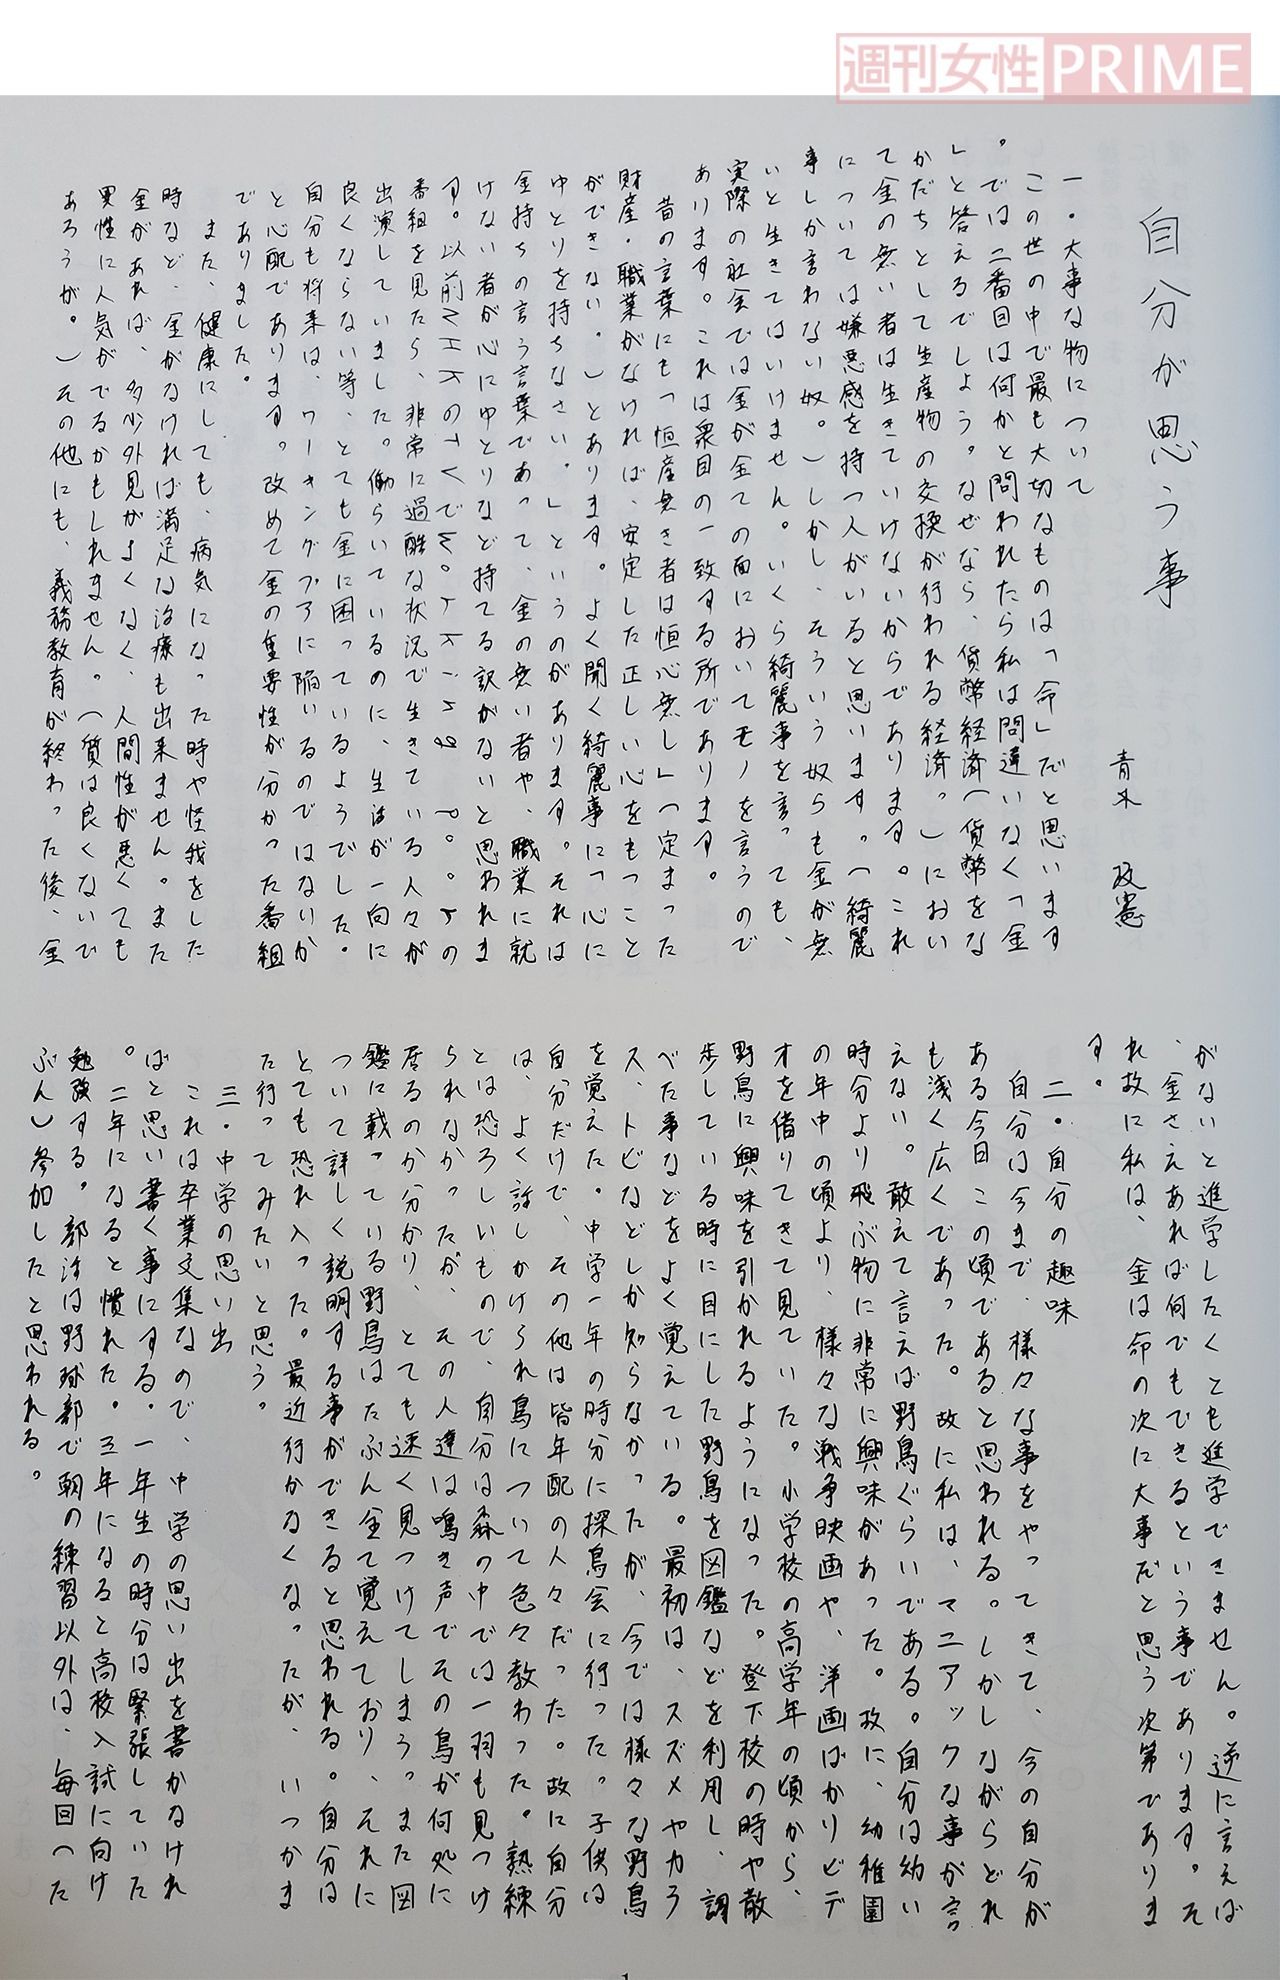 週刊女性PRIME
自分が思う事
青木 政憲
一・大事な物について
この世の中で最も大切なものは「命」だと思います
。では二番目は何かと問われたら私は間違いなく「金
」と答えるでしょう。なぜなら、貨幣経済(貨幣をな
かだちとして生産物の交換が行われる経済。)におい
て金の無い者は生きていけないからであります。これ
については嫌悪感を持つ人がいると思います。(綺麗
事しか言わない奴。)しかし、そういう奴らも金が無
いと生きてはいけません。いくら綺麗事を言っても、
実際の社会では金が全ての面においてモノを言うので
あります。これは衆目の一致する所であります。
昔の言葉にも「恒産無き者は恒心無し」(定まった
財産・職業がなければ、安定した正しい心をもつこと
ができない。)とあります。よく聞く綺麗事に「心に
ゆとりを持ちなさい。」というのがあります。それは
金持ちの言う言葉であって、金の無い者や、職業に就
けない者が心にゆとりなど持てる訳がないと思われま
す。以前NHKの
番組を見たら、非常に過酷な状況で生きている人々が
出演していました。働らいているのに、生活が一向に
良くならない等、とても金に困っているようでした。
自分も将来は、ワーキングプアに陥いるのではないか
と心配であります。改めて金の重要性が分かった番組
でありました。
また、健康にしても、病気になった時や怪我をした
時など、金がなければ満足な治療も出来ません。また
金があれば、多少外見がよくなく、人間性が悪くても
異性に人気がでるかもしれません。(質は良くないで
あろうが。)その他にも、義務教育が終わった後、金
がないと進学したくとも進学できません。逆に言えば
、金さえあれば何でもできるという事であります。そ
れ故に私は、金は命の次に大事だと思う次第でありま
す。
二・自分の趣味
自分は今まで、様々な事をやってきて、今の自分が
ある今日この頃であると思われる。しかしながらどれ
も浅く広くであった。故に私は、マニアックな事が言
えない。敢えて言えば野鳥ぐらいである。自分は幼い
時分より飛ぶ物に非常に興味があった。故に、幼稚園
の年中の頃より、様々な戦争映画や、洋画ばかりビデ
オを借りてきて見ていた。小学校の高学年の頃から、
野鳥に興味を引かれるようになった。登下校の時や散
歩している時に目にした野鳥を図鑑などを利用し、調
べた事などをよく覚えている。最初は、スズメやカラ
ス、トビなどしか知らなかったが、今では様々な野鳥
を覚えた。中学一年の時分に探鳥会に行った。子供は
自分だけで、その他は皆年配の人々だった。故に自分
は、よく話しかけられ鳥について色々教わった。熟練
とは恐ろしいもので、自分は森の中では一羽も見つけ
られなかったが、その人達は鳴き声でその鳥が何処に
居るのか分かり、とても速く見つけてしまう。また図
鑑に載っている野鳥はたぶん全て覚えており、それに
ついて詳しく説明する事ができると思われる。自分は
とても恐れ入った。最近行かなくなったが、いつかま
た行ってみたいと思う。
三・中学の思い出
これは卒業文集なので、中学の思い出を書かなけれ
ばと思い書く事にする。一年生の時分は緊張していた
。二年になると慣れた。三年になると高校入試に向け
勉強する。部活は野球部で朝の練習以外は、毎回(た
ぶん)参加したと思われる。
1